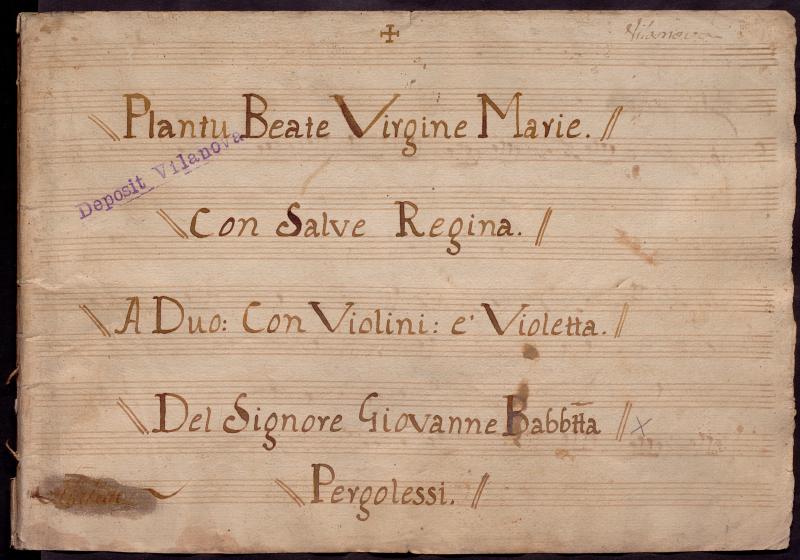 Vilanova
\\ Plantu Beate Virgine Marie. //
Deposit Vilanova
\\ Con Salve Regina. //
\\ A Duo: Con Violini: e' Violetta. //
\\ Del Signore Giovanne Babbtta // x
\\ Pergolessi. //